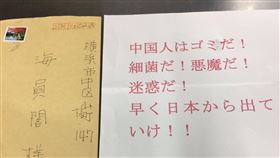 横浜市中区山下町147
海員閣様
中国人はゴミだ！
細菌だ！悪魔だ！
迷惑だ！
早く日本から出て
いけ！！